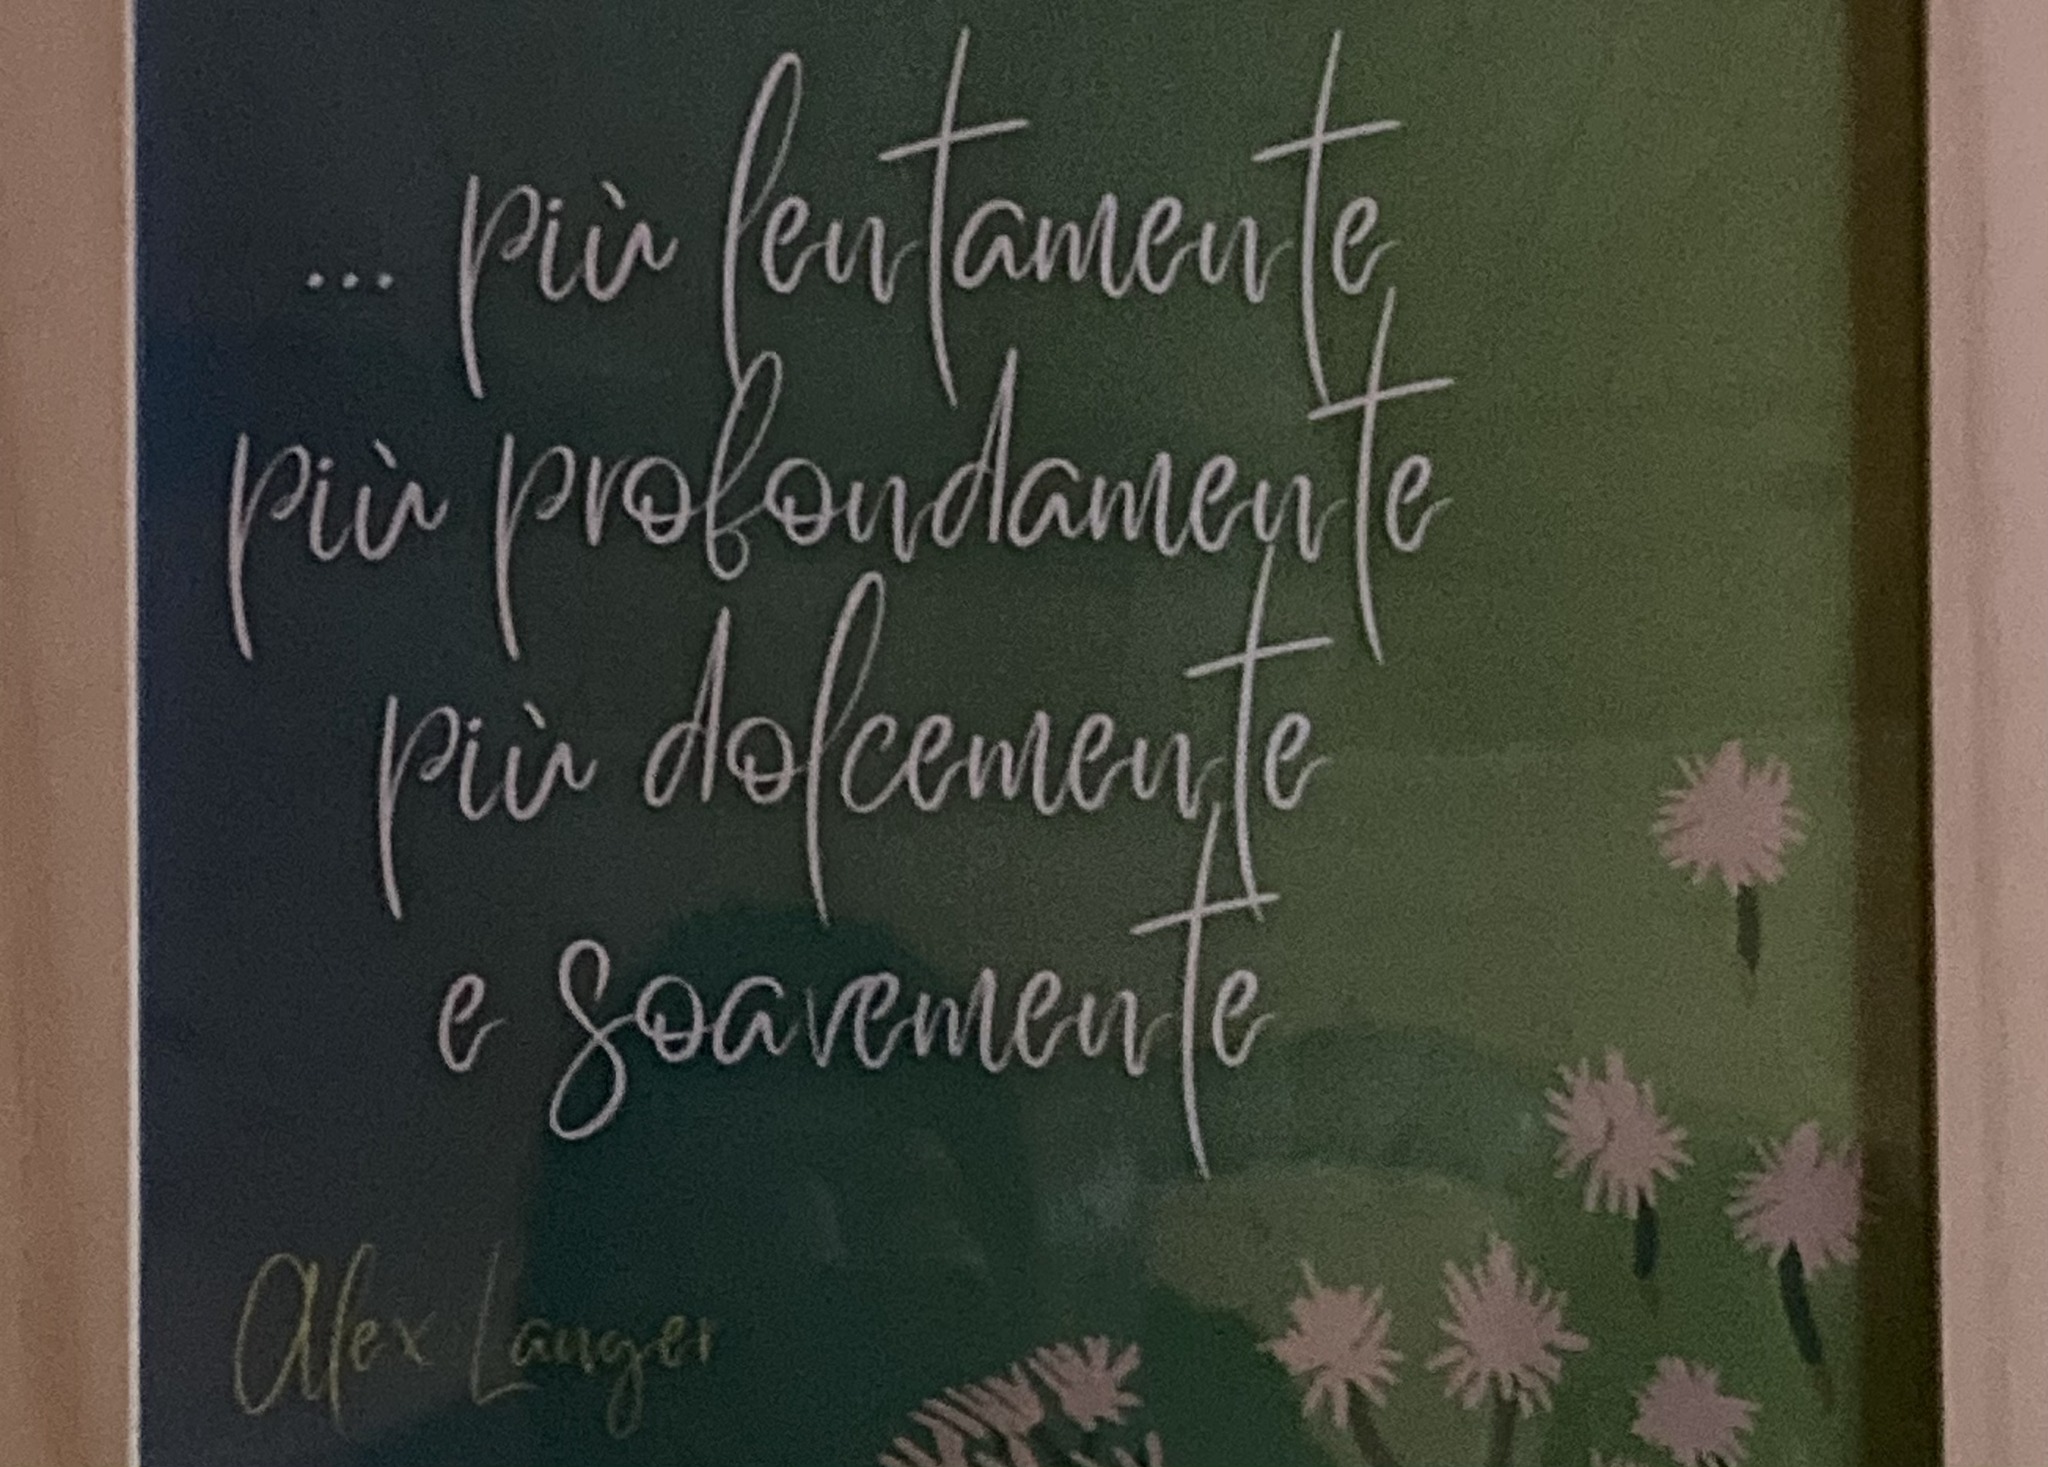 ... più lentamente
più profondamente
più dolcemente
e soavemente
Alex Langer